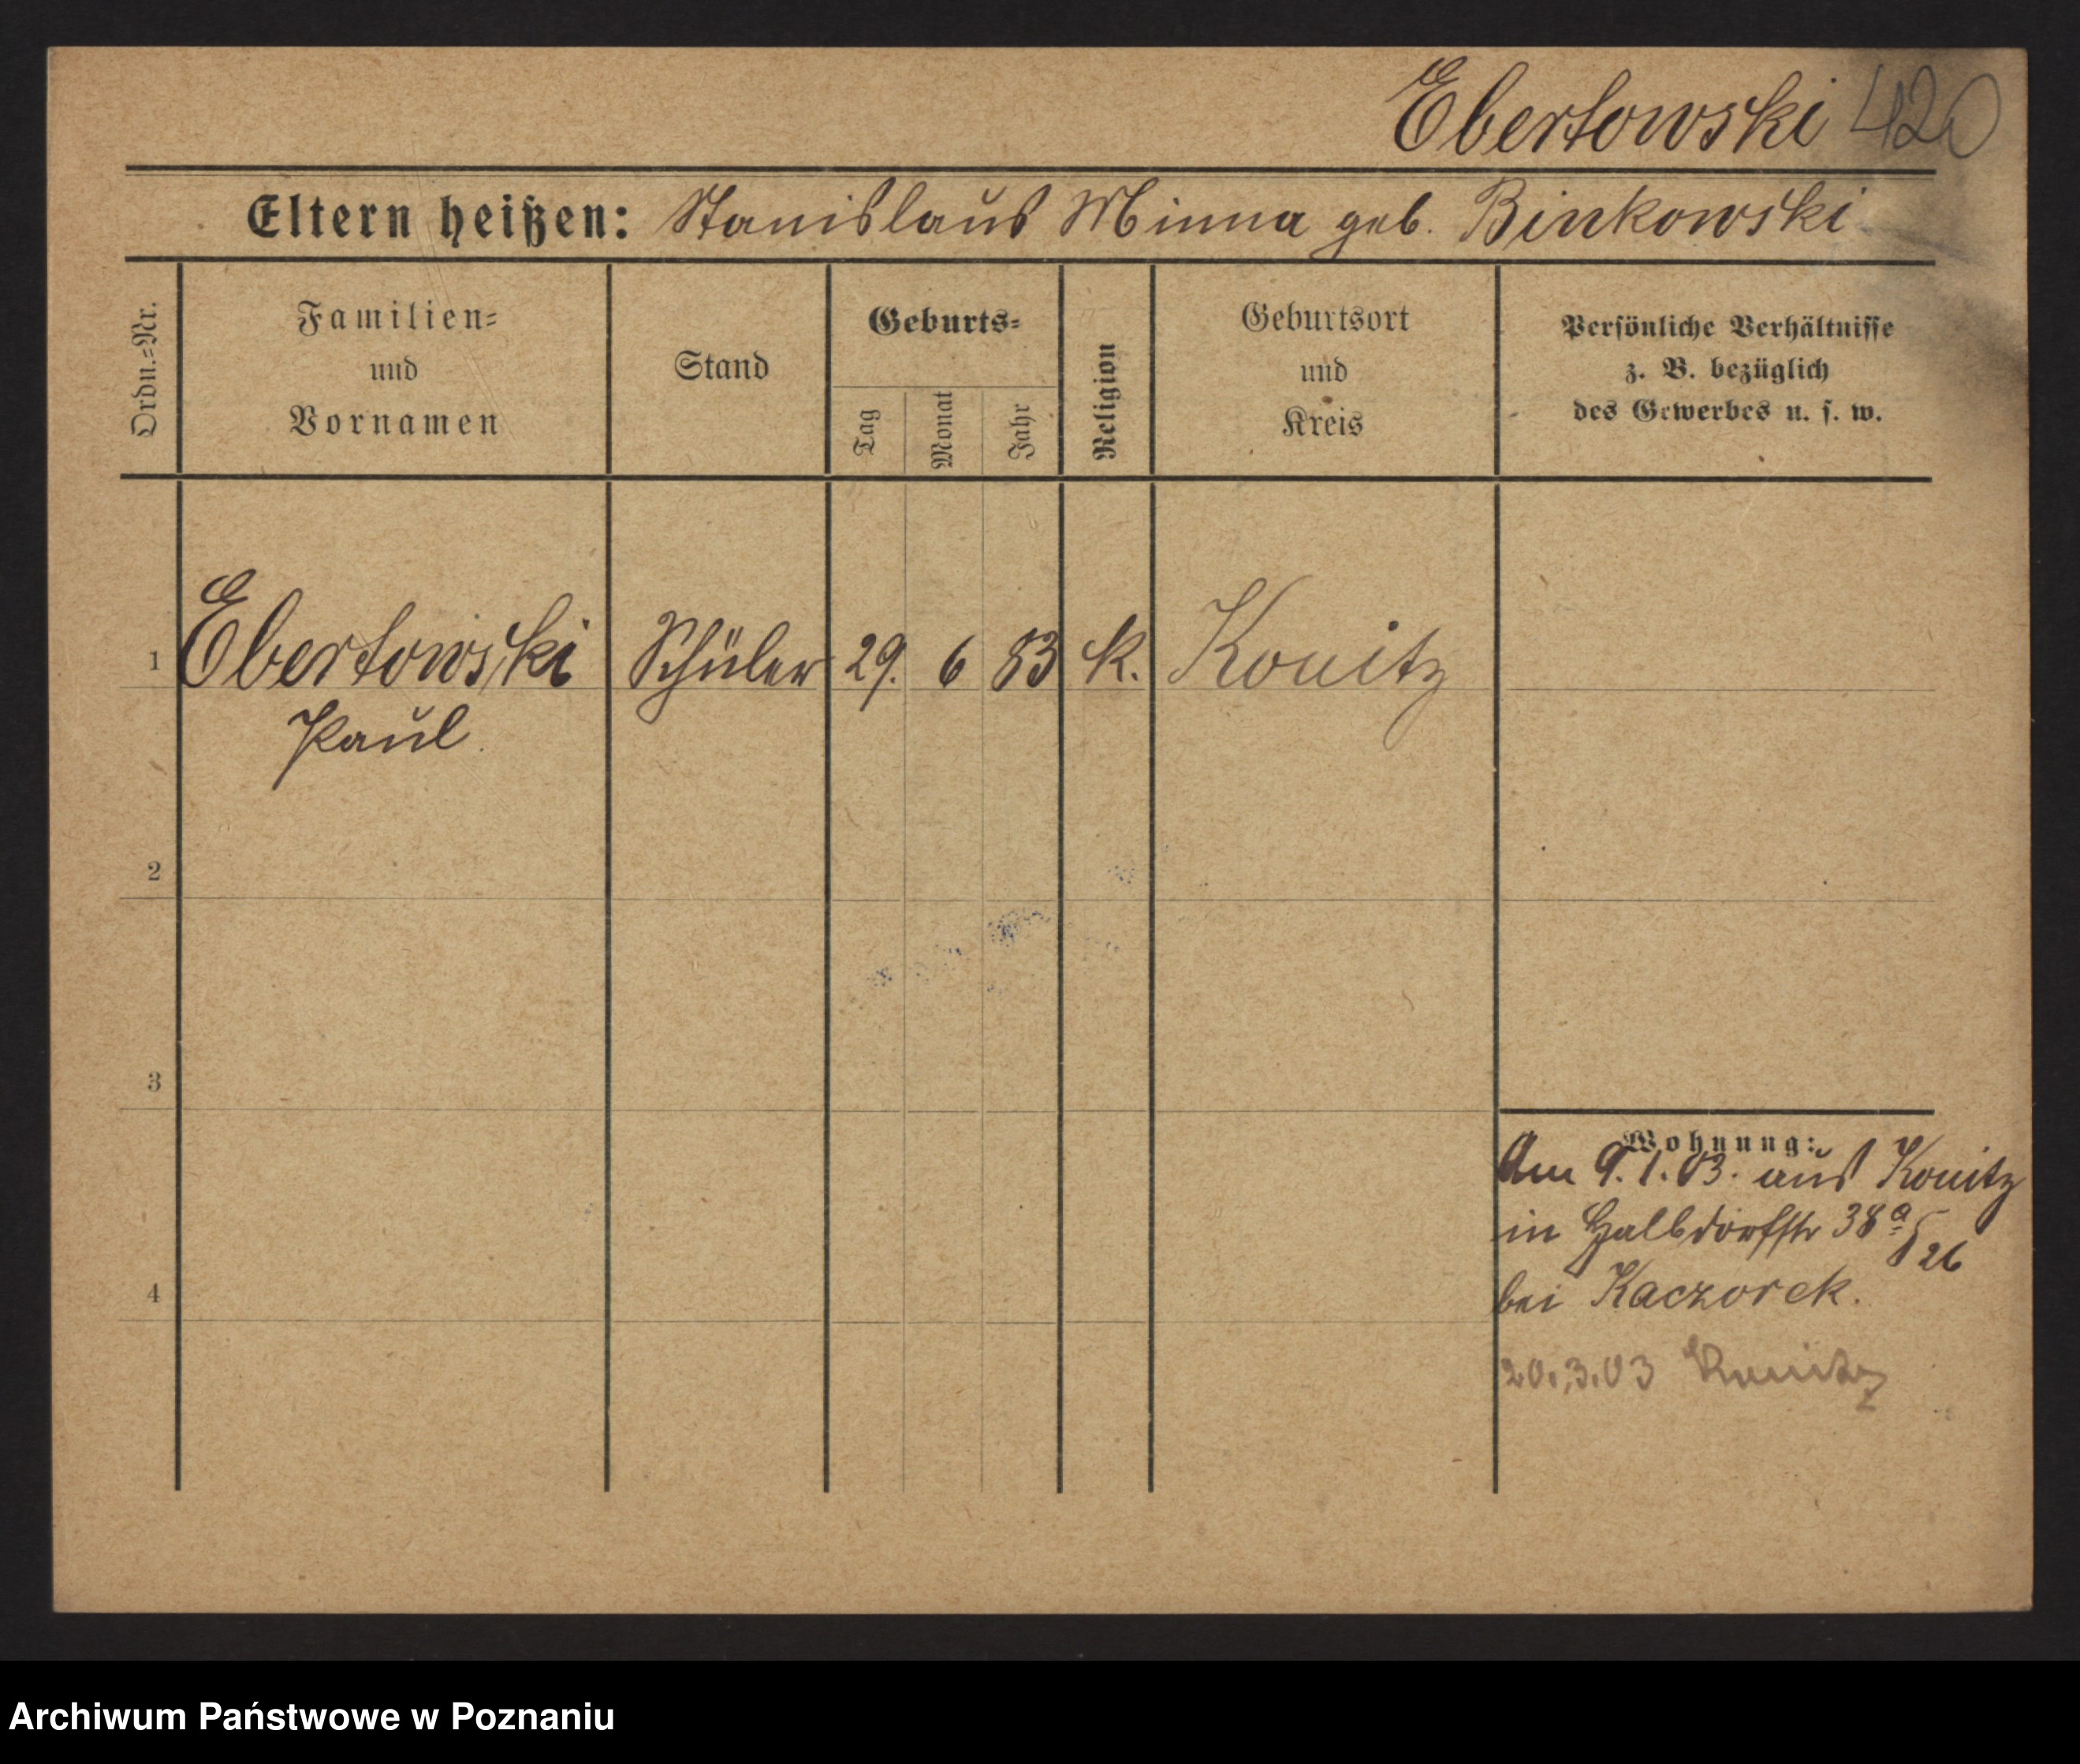 Ebertowski 420
Eltern heißen: Stanislaus Minna geb. Binkowski
Ordn.=Nr.
Familien=
und
Vornamen
Stand
Geburts=
Tag
Monat
Jahr
Religion
Geburtsort
und
Kreis
Persönliche Verhältnisse
z. B. bezüglich
des Gewerbes u. s. w.
1 Ebertowski Schüler 29. 6 83 k. Konitz
Paul
2
3
4
Wohnung:
Am 9.1.03. aus Konitz
in Halbdorfstr 38a
26
bei Kaczorek.
20.3.03 Konitz
Archiwum Państwowe w Poznaniu